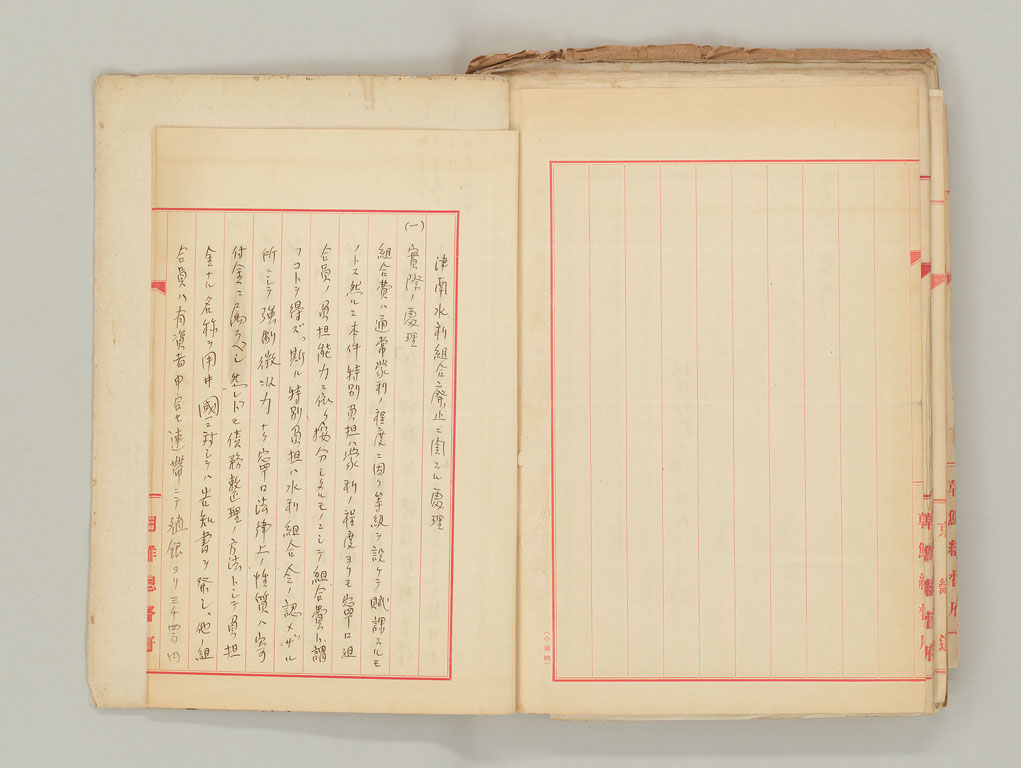 津南水利組合廃止ニ関スル處理
(一)
實際ノ處理
組合費ハ通常蒙利ノ程度ニ因リ等級ヲ設ケテ賦課スルモ
ノトス然ルニ本件特別負担ハ蒙利ノ程度ヨリモ寧ロ組
合員ノ負担能力ニ依リ按分シタルモノニシテ組合費ト謂
フコトヲ得ズ斯ル特別負担ハ水利組合令ノ認メザル
所ニシテ強制徴収力ナク寧ロ法律上ノ性質ハ寄
付金ニ属スベシ然レドモ債務整理ノ方法トシテ負担
金ナル名称ヲ用ヰ國ニ対シテハ告知書ヲ発シ、他ノ組
合員ハ有資者申合セ連帯ニテ殖銀ヨリ三千四百円
朝鮮總督府
朝鮮總督府
朝鮮總督府